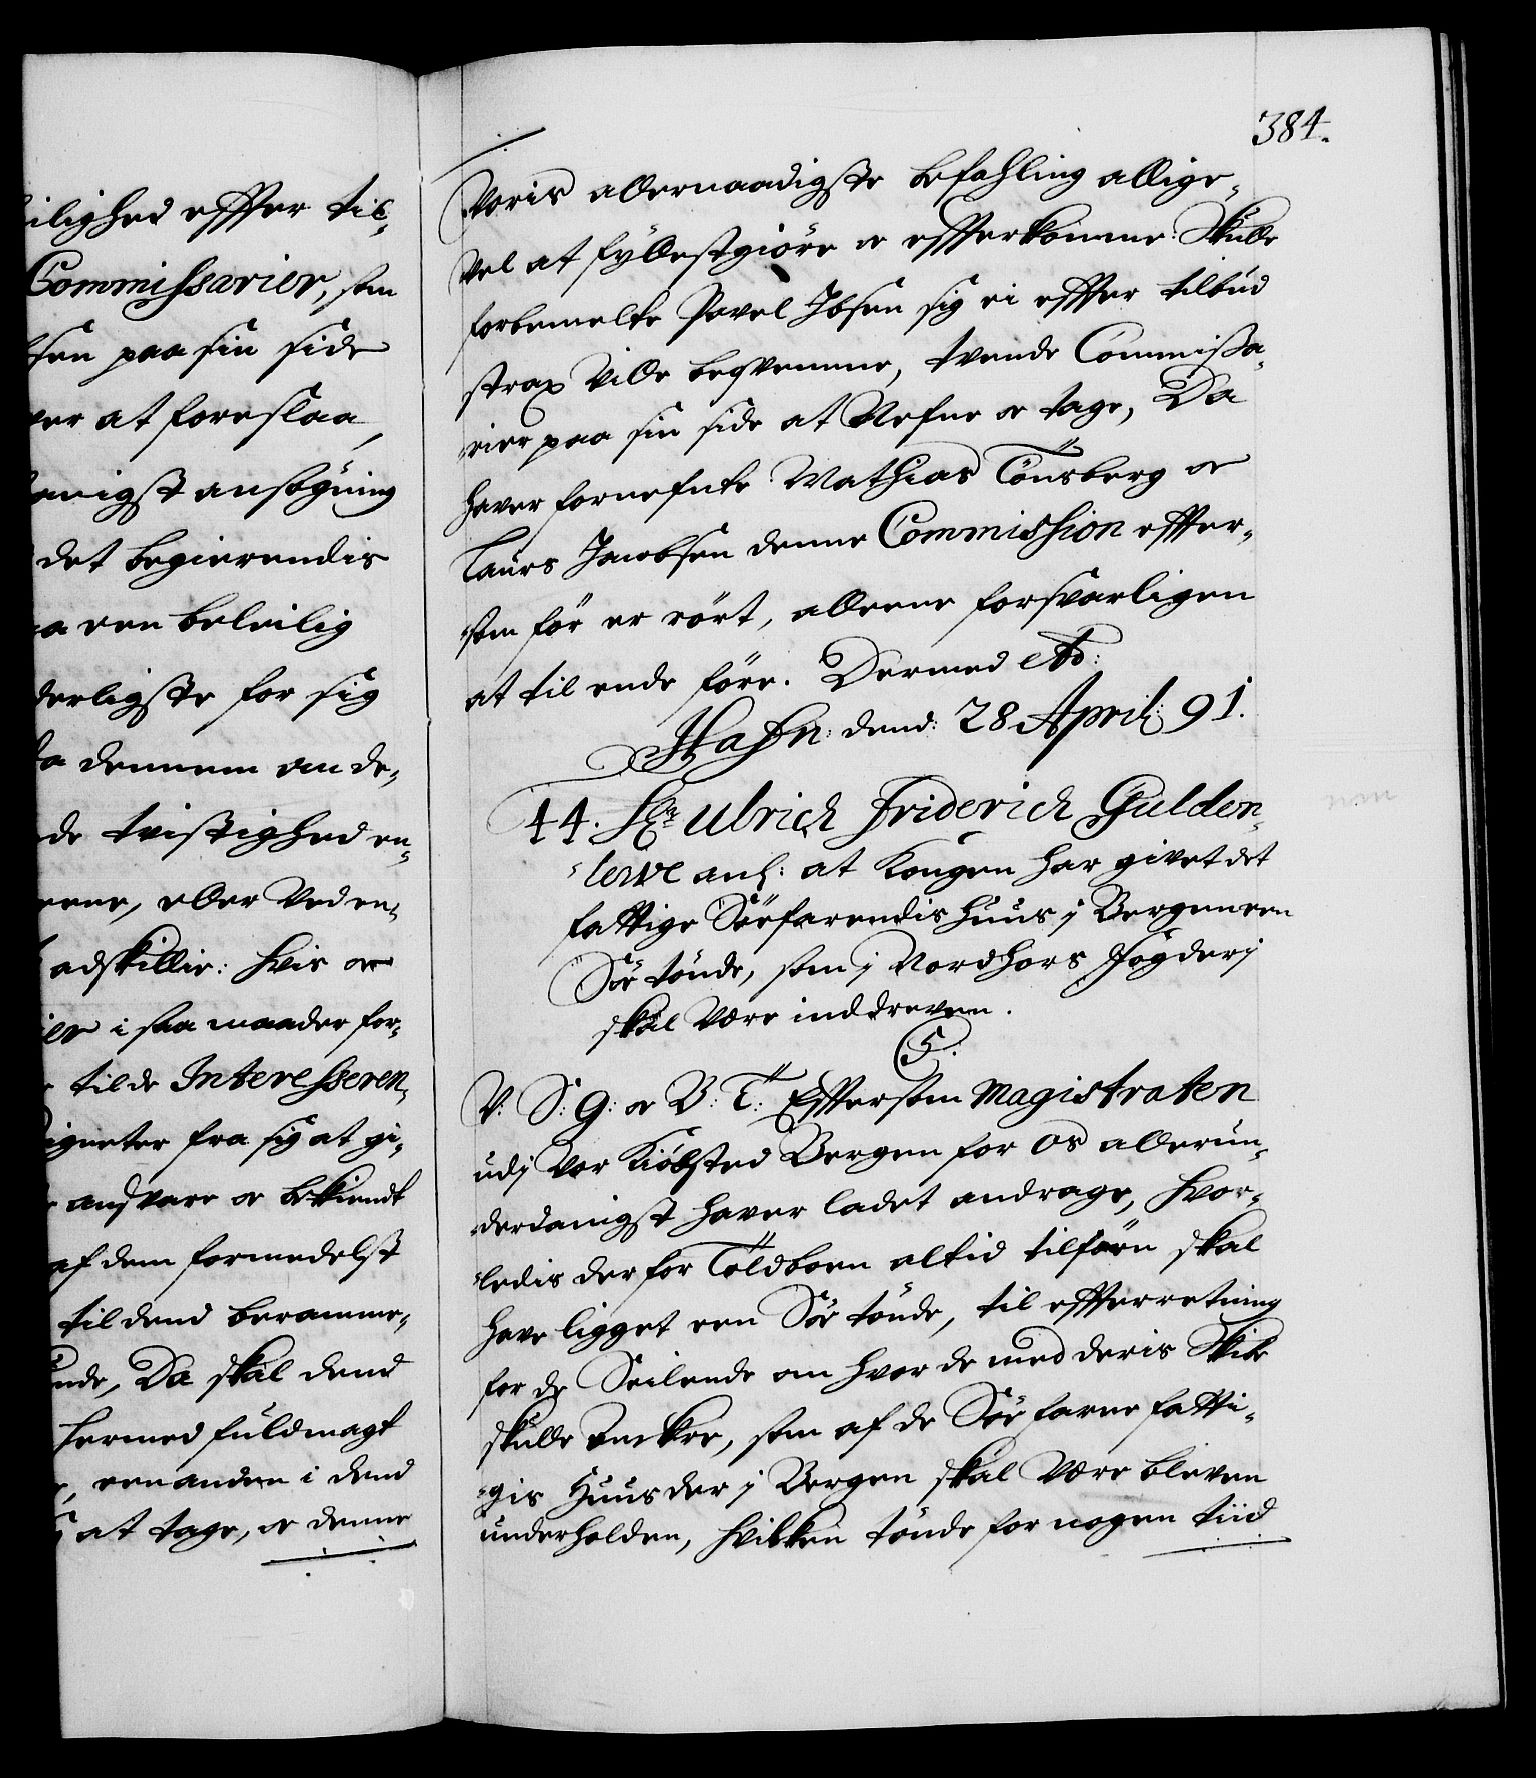 ilighed effter til-
Commissarier, som
sen paa sin side
ver at foreslaa,
danigst ansøgning
det begierendis
a een beleilig
derligste for sig
da dennem om de-
de tvistigheden-
eene, eller Ved en-
adskillie: Hvis or
iler i saa maader for-
tilde Interesseren-
igneter fra sig at gi-
andsvare oc bekiendt
af dem formedelst
til dend beramme-
unde, Da skal dend
hermed fuldmagt
, een anden i dend
at tage, oc denne
384.
Voris allernaadigste befahling allige-
Vel at fyllestgiöre oc effterkomme: Skulle
forbemelte Povel Ibsen sig ei effter tilbud
strax Ville beqvemme, tvende Commissa-
rier paa sin side at Nefne oc tage, Da
haver fornefnte Mathias Tönsberg oc
Laurs Jacobsen denne Commission effter-
som för er rört, alleene forsvarligen
at til ende före. Dermed etc:
Hafn: dend: 28 April: 91.
44. Hr. Ulrich Friderich Gulden-
lewe anl: at Kongen har givet det
fattige Söefarendis Huus j Bergen een
Söe tönde, som j Nordhors Fögderj
skal Være inddreven.
5.
V: S: G: oc V: T: Effter som Magistraten
udj Vor Kiöbsted Bergen for Os allerun-
derdanigst haver ladet andrage, Hvor-
ledis der for Toldboen altid tilförn skal
have ligget een Söe tönde, til effterretning
for de Seilende om hvor de med deris Skibe
skulle Anckre, som af de Söefarne fatti-
gis Huus der j Bergen skal Være bleven
underholden, Hvilken tönde for nogen tiid